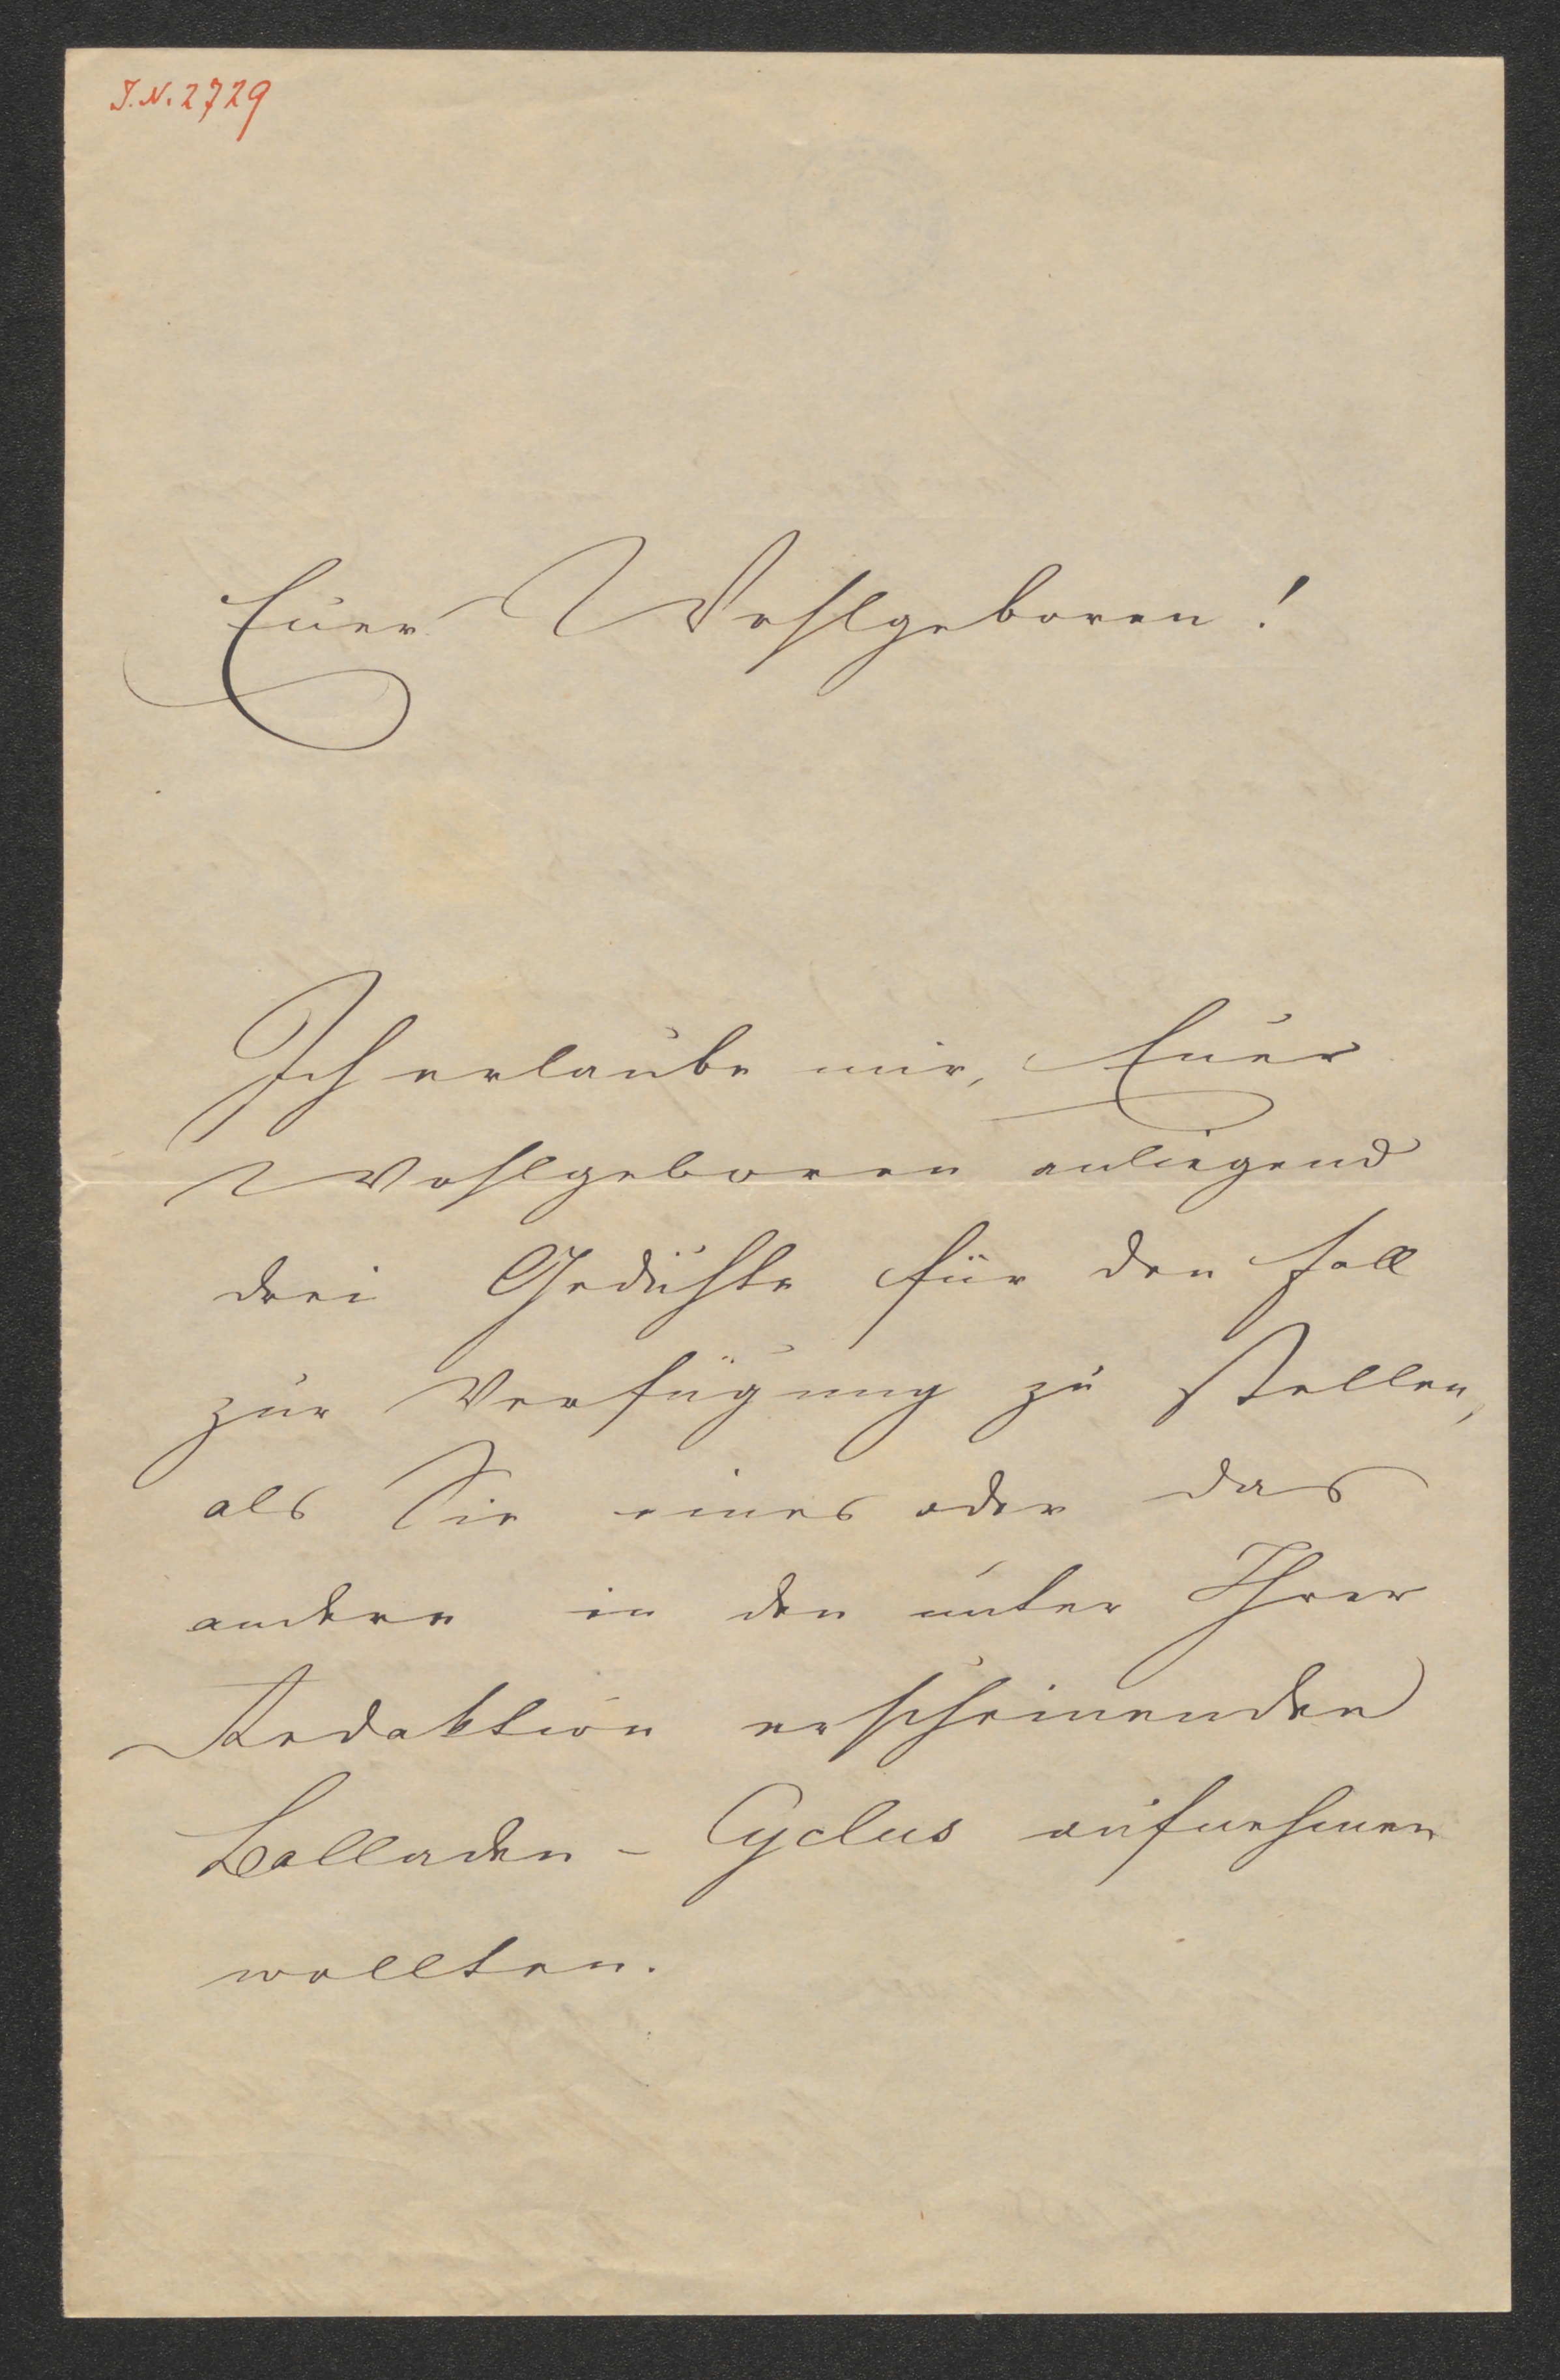 J.N. 2729
Euer Wohlgeboren!
Ich erlaube mir, Euer
Wohlgeboren anliegend
drei Gedichte für den Fall
zur Verfügung zu stellen,
als Sie eines oder das
andere in den unter Ihrer
Redaktion erscheinenden
Balladen-Cyclus aufnehmen
wollten.